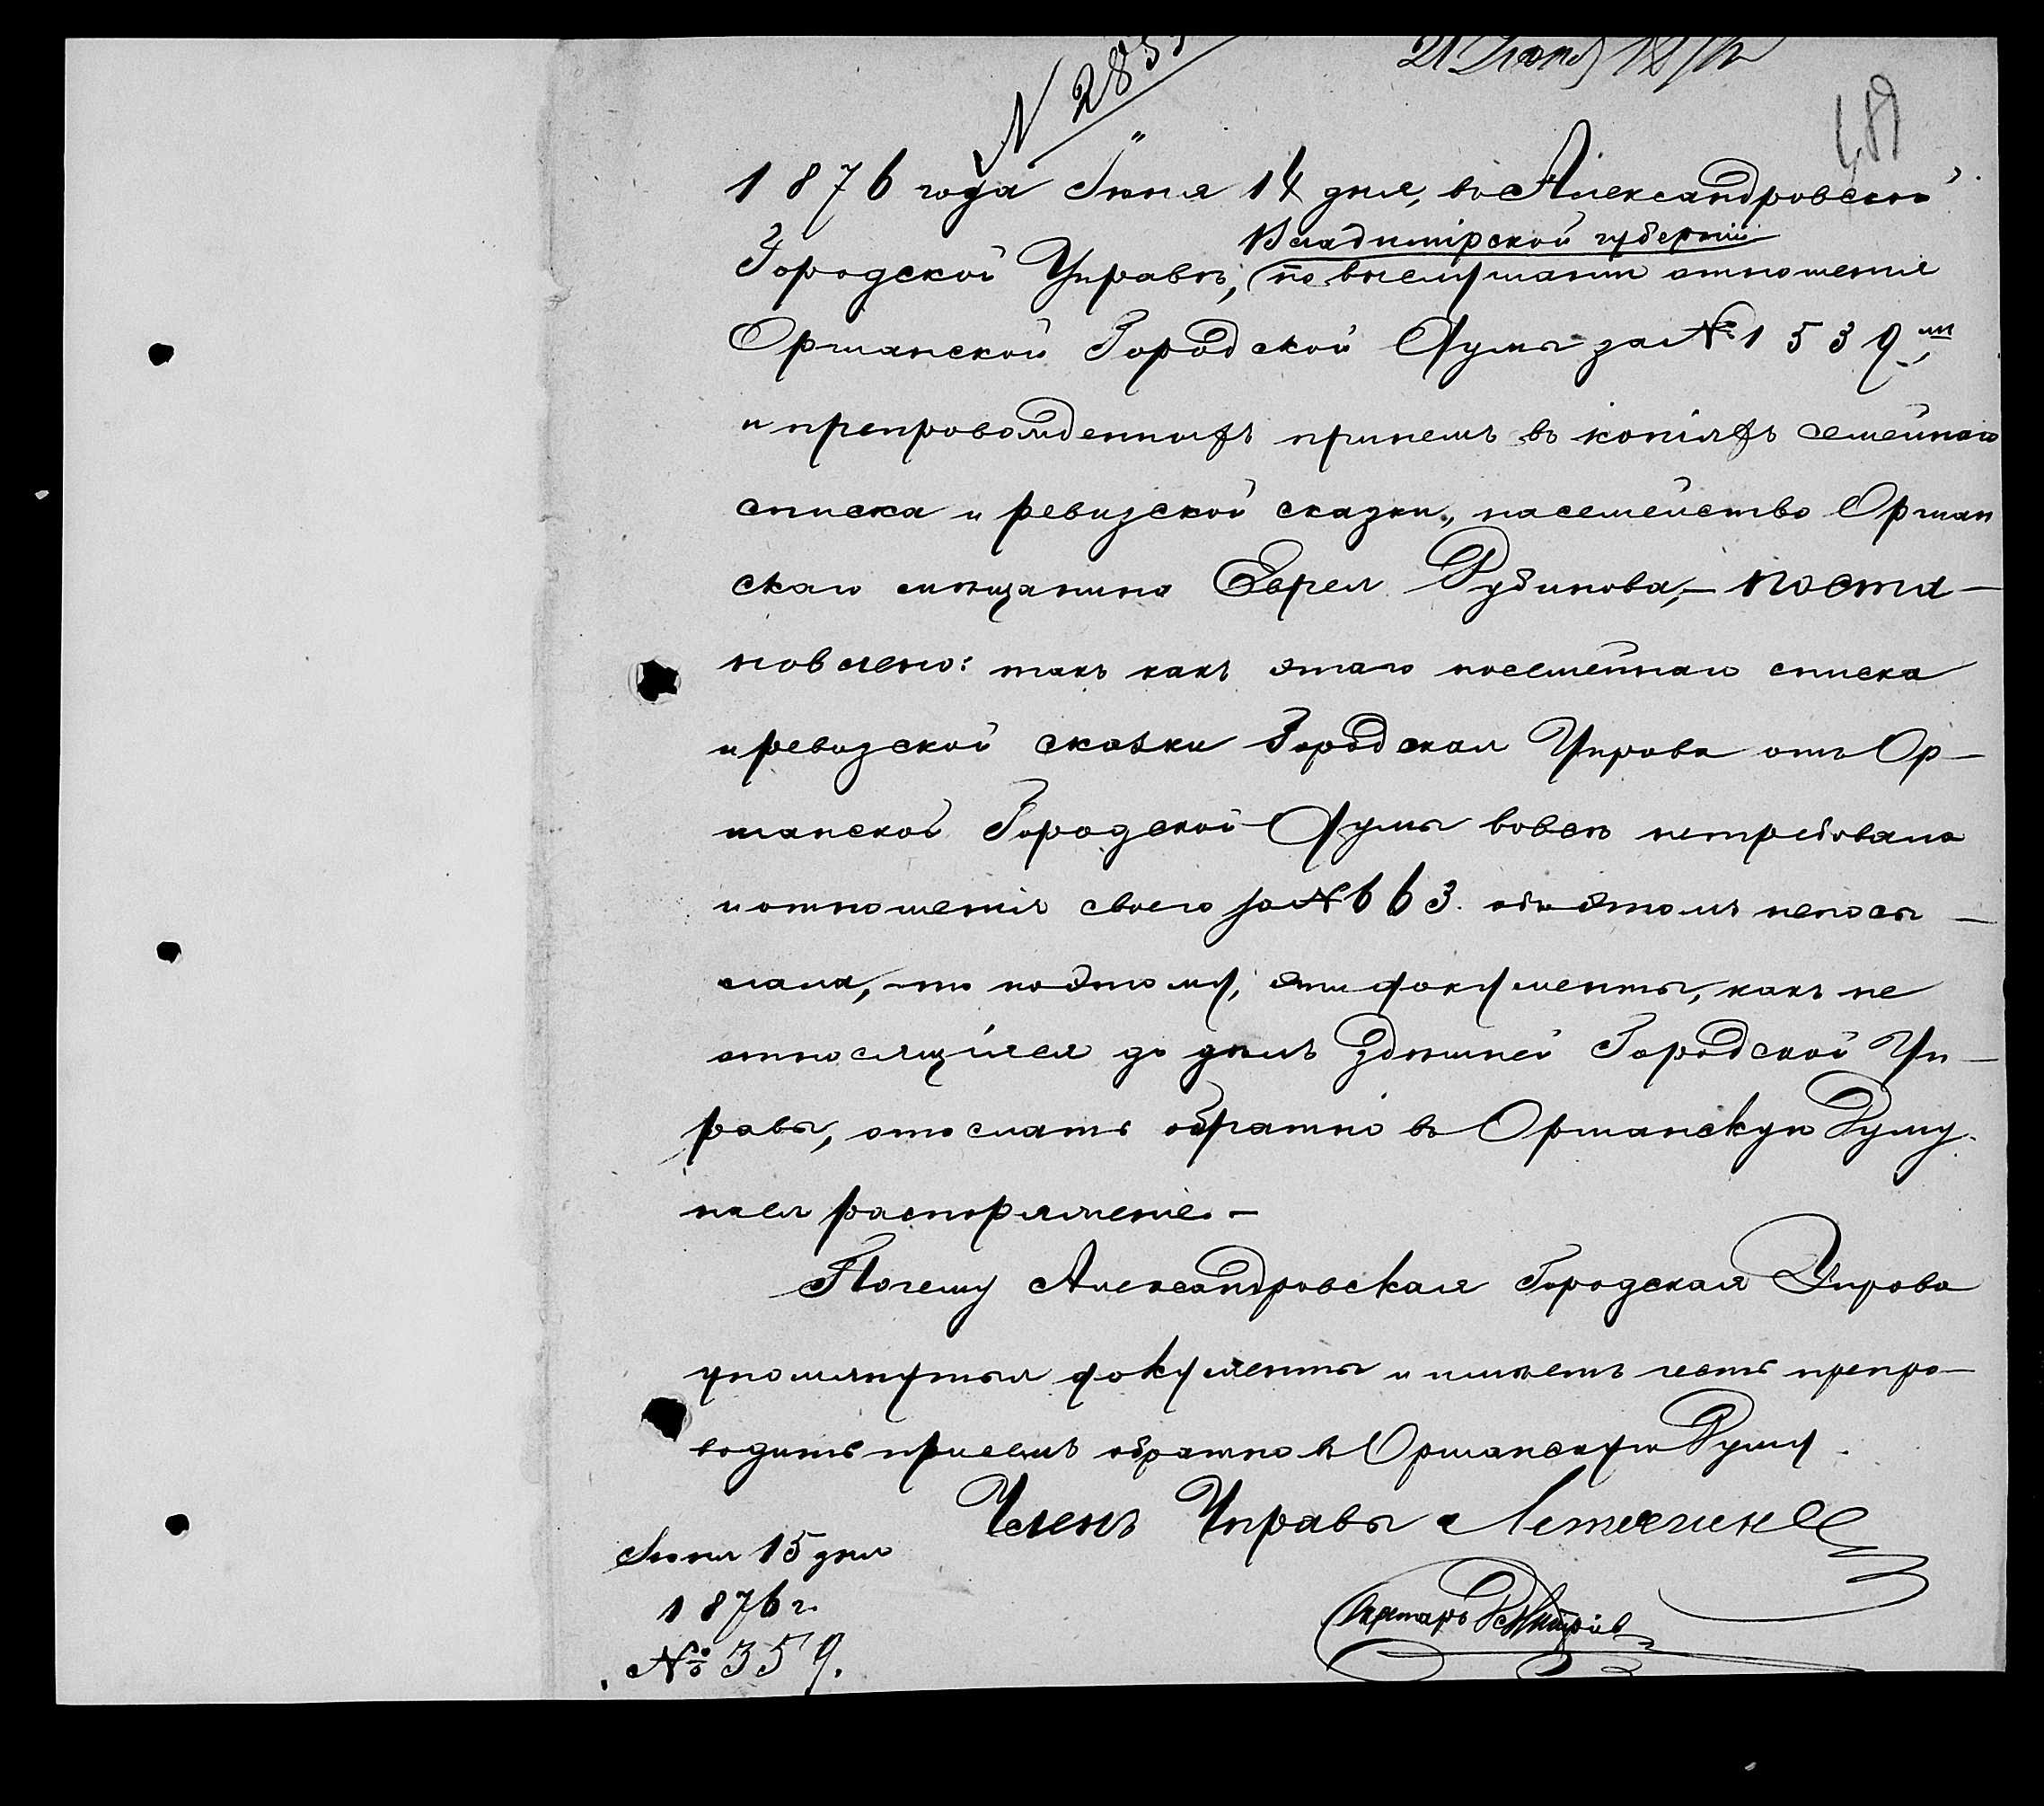 № 285
21 Июня 1876
489
1876 года Iюня 14 дня, въ Александровской
Владимiрской губернiи
Городской Управѣ, по выслушанiи отношенiе
Оршанской Городской Думы за № 1539мъ,
и препровожденныхъ принемъ въ копiяхъ семейнаго
списка и ревизской сказки, насемейство Оршан
скаго мѣщанина Еврея Рубинова,— поста-
новлено: такъ какъ этаго посемейнаго списка
и ревизской сказки Городская Управа отъ Ор-
шанской Городской Думы вовсѣ нетребовала
и отношенiя своего за № 663 объ этомъ непосы-
лала, то поэтому, эти документы, какъ не
относящiяся до дѣлъ здѣшней Городской Уп-
равы, отослать обратно въ Оршанскую Думу
на ея распоряженiе.—
Почему Александровская Городская Управа
упомянутыя документы и имѣетъ честь препро-
водить присемъ обратно въ Оршанскую Думу.
Членъ Управы
Iюня 15 дня
1876 г.
№ 359.
Секретарь